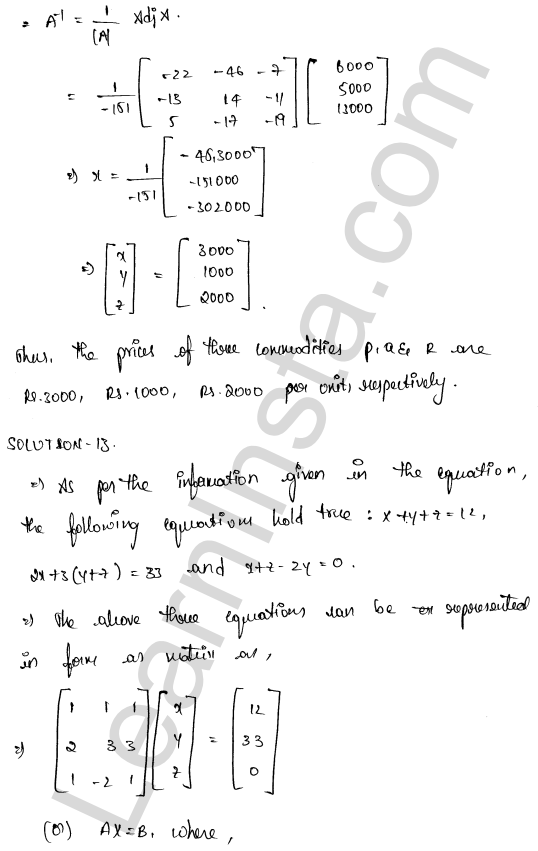 ⇒ A⁻¹ = 1/|A| Adj A.
= 1/-151 [ -22 -46 -7 ] [ 6000 ]
[ -13 14 -11 ] [ 5000 ]
[ 5 -17 -19 ] [ 13000 ]
⇒ x = 1/-151 [ -45,3000 ]
[ -151000 ]
[ -302000 ]
⇒ [ x ] = [ 3000 ]
[ y ] [ 1000 ]
[ z ] [ 2000 ] .
Thus, the prices of three commodities P, Q & R are
Rs.3000, Rs.1000, Rs.2000 per unit, respectively.
SOLUTION-13.
⇒ As per the information given in the equation,
the following equations hold true : x+y+z=12,
2x+3(y+z)=33 and x+z-2y=0.
⇒ The above three equations can be represented
in form as matrix as,
⇒ [ 1 1 1 ] [ x ] = [ 12 ]
[ 2 3 3 ] [ y ] [ 33 ]
[ 1 -2 1 ] [ z ] [ 0 ]
(or) AX=B, where,
LearnInsta.com